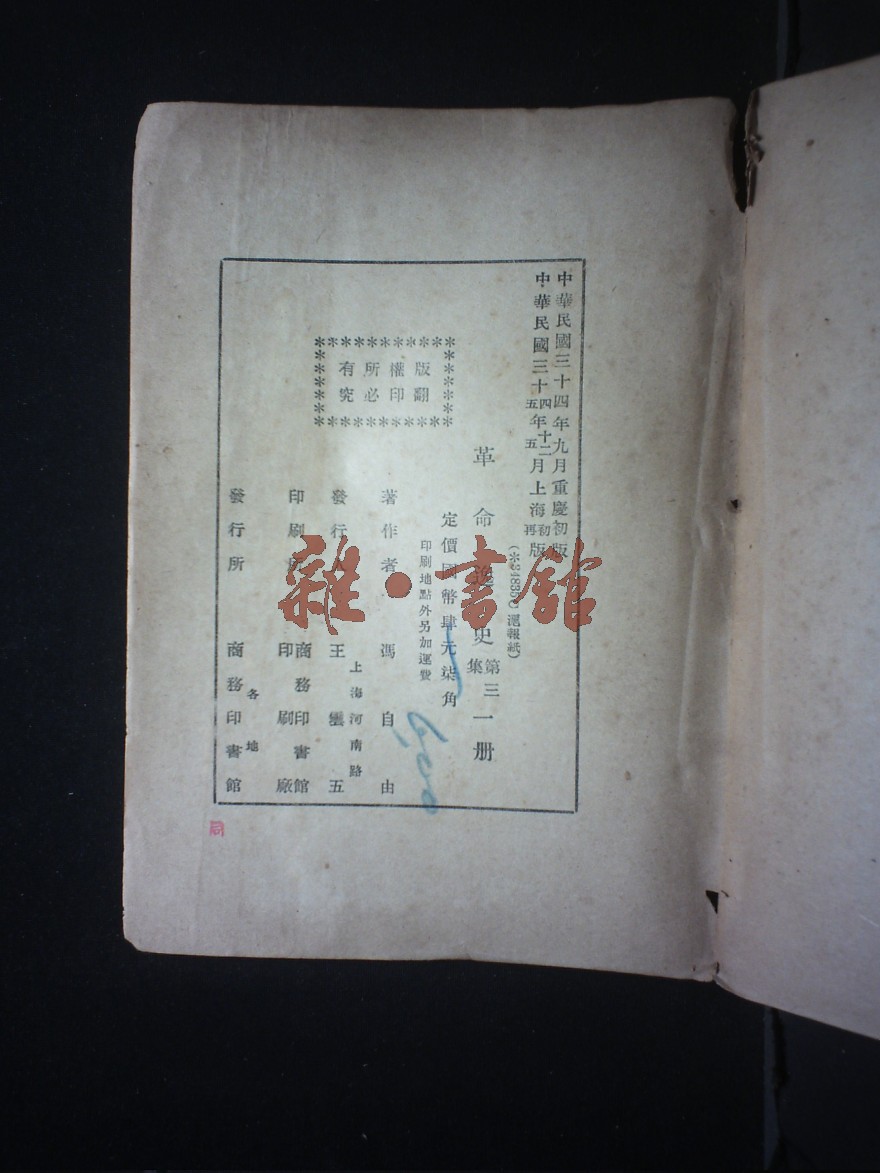 中華民國三十四年九月重慶初版
中華民國三十四五年十二五月上海初再版
滬報紙)
革命逸史第三集一册
定價國幣肆元柒角
印刷地點外另加運費
版權所有
翻印必究
著作者 馮自由
發行人 王雲五
上海河南路
印刷所 商務印書館印刷廠
發行所 各地商務印書館
雜·書館